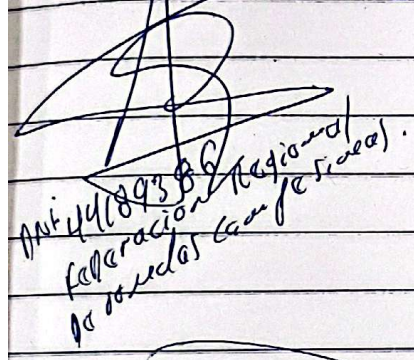 DNI 44189386
federación Regional
de rondas campesinas.